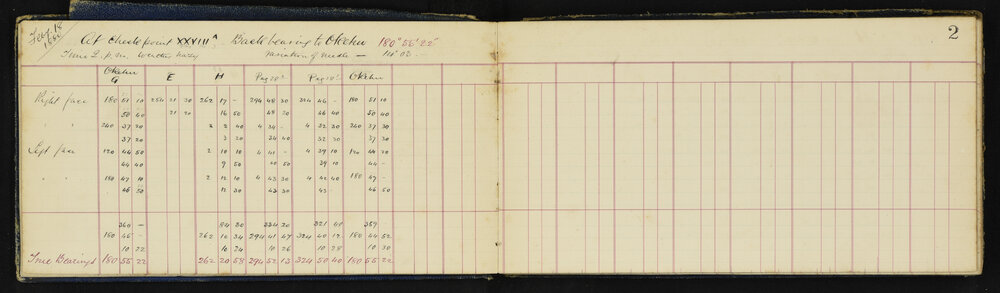 2
Feby 18
1886
At Check point XXVIII A Back bearing to Okehu 180° 55' 22"
Time 2. p.m. Weather hazy Variation of needle — 14° 03
Okehu
G E H Peg 28A Okehu
Right face 180 51 10 254 21 30 262 17 - 294 48 30 324 46 - 180 51 10
50 40 21 20 16 50 48 20 46 40 50 40
" " 240 37 30 2 2 40 4 34 - 4 32 30 240 37 30
37 20 3 20 34 40 32 30 37 30
Left face 120 44 50 2 10 10 4 41 - 4 39 10 120 44 20
44 40 9 50 40 50 39 10 44 -
" " 180 47 10 2 12 10 4 43 30 4 42 40 180 47 -
46 50 12 30 43 30 43 - 46 50
360 - 84 30 334 20 321 41 359 -
180 45 - 262 10 34 294 41 47 324 40 12 180 44 52
10 22 10 24 10 26 10 28 10 30
True Bearings 180 55 22 262 20 58 294 52 13 324 50 40 180 55 22